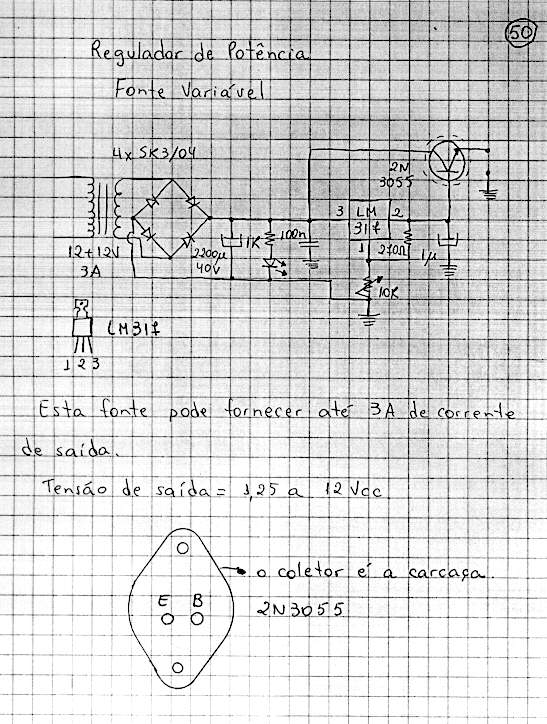 50
Regulador de Potência
Fonte Variável
4x SK3/04
2N
3055
3 LM 2
317
1
1K
100n
270Ω
1µ
12+12V
3A
2200µ
40V
10K
LM317
1 2 3
Esta fonte pode fornecer até 3A de corrente
de saída.
Tensão de saída = 1,25 a 12 Vcc
o coletor é a carcaça.
E B
2N3055